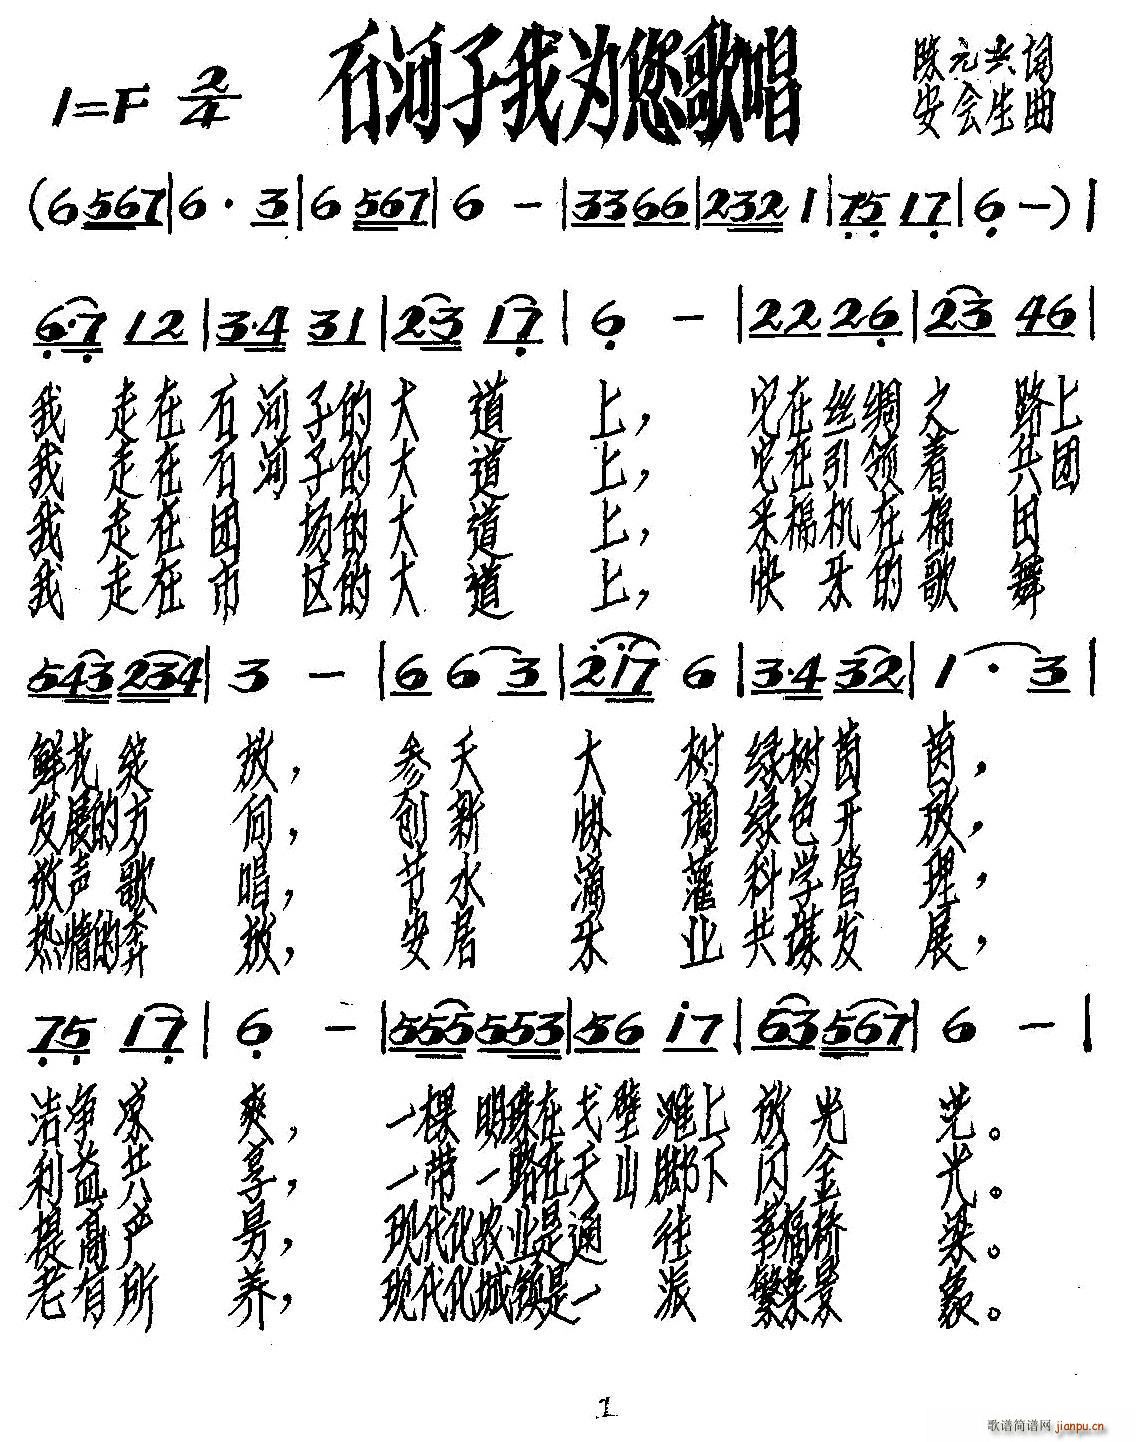 石河子我为您歌唱
1=F 2/4
陈元兴词
安会生曲
(6 567|6·3|6 567|6 -|33 66|232 1|75 17|6 -)|
6·7 12|3·4 31|23 17|6 -|22 26|23 46|
我走在石河子的大道上，它在丝绸之路上
我走在石河子的大道上，它在引领着兵团
我走在团场的大道上，采棉机在棉田
我走在市区的大道上，快乐的歌舞
543 234|3 -|6 6 3|217 6|3·4 32|1·3|
鲜花绽放，参天大树绿树茵茵，
发展的方向，创新协调绿色开放，
放声歌唱，节水滴灌科学管理，
热情的奔放，安居乐业共谋发展，
75 17|6 -|555 553|56 17|63 567|6 -|
洁净凉爽，一棵明珠在戈壁滩上放光芒。
利益共享，一带一路在天山脚下闪金光。
提高产量，现代化农业是通往幸福桥梁。
老有所养，现代化城镇是一派繁荣景象。
1
歌谱简谱网 jianpu.cn